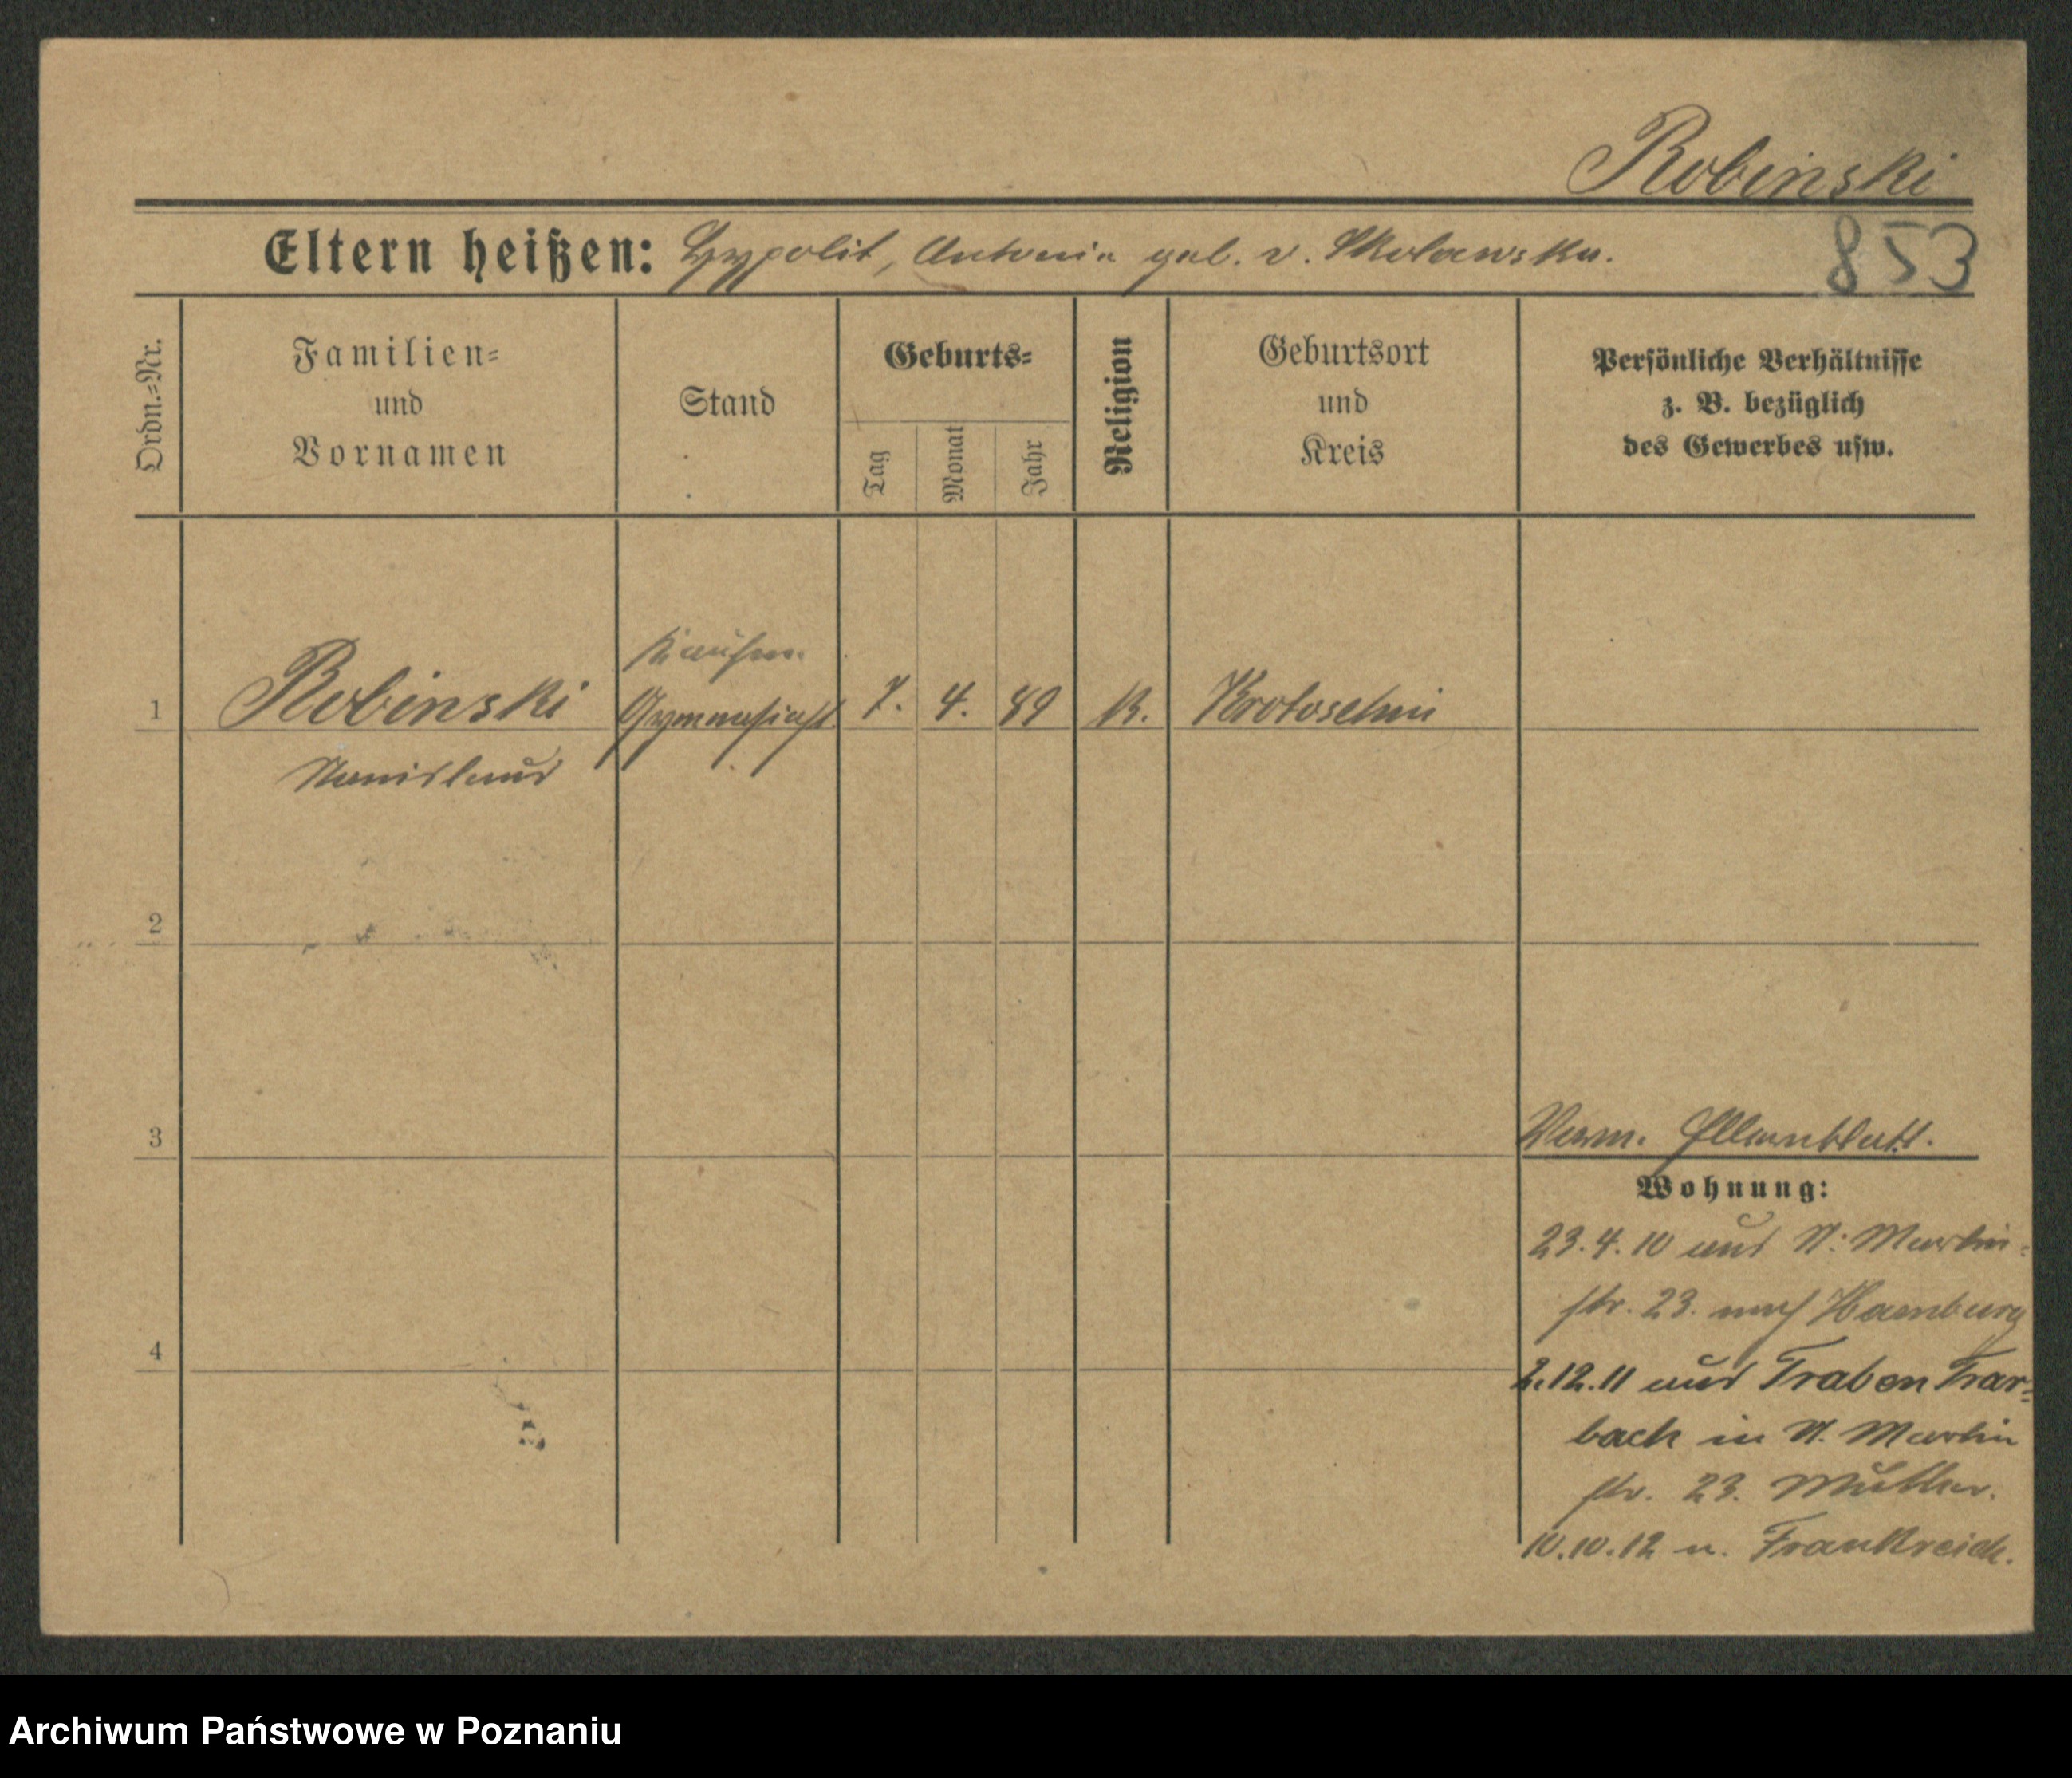 Robinski
853
Eltern heißen: Hypolit, Antonie geb. v. Skolawska.
Ordn.=Nr.
Familien=
und
Vornamen
Stand
Geburts=
Tag
Monat
Jahr
Religion
Geburtsort
und
Kreis
Persönliche Verhältnisse
z. B. bezüglich
des Gewerbes usw.
Kaufm.
1 Robinski Gymnasiast 7. 4. 89 K. Krotoschin
Stanislaus
2
3
Verm. Elternblatt.
Wohnung:
23.4.10 aus St. Martin=
str. 23. nach Hamburg
4
2.12.11 aus Traben Trar=
bach in St. Martin
str. 23. Mutter.
10.10.12 n. Frankreich.
Archiwum Państwowe w Poznaniu